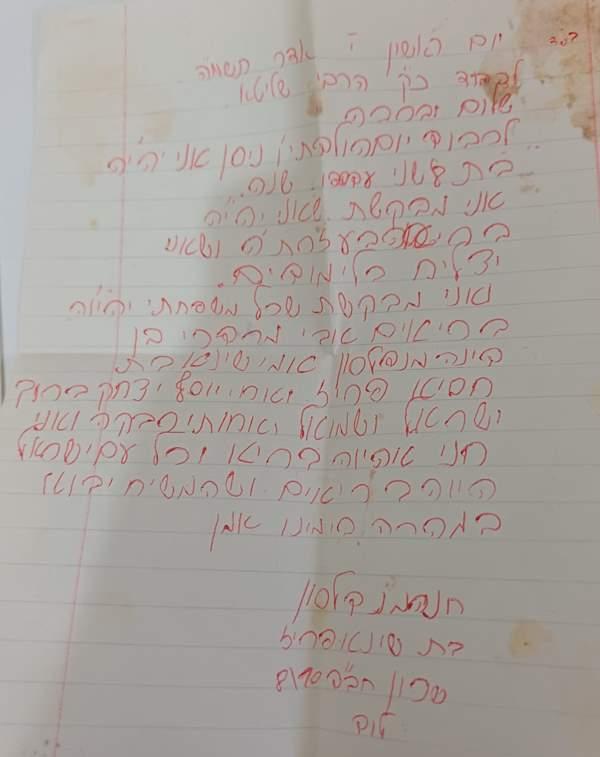 בס"ד
יום ראשון י' אדר תשמ"ה
לכבוד כ"ק הרבי שליטא
שלום וברכה
לכבוד יום הולדתי י' ניסן אני יה"יה
בת שנה.
אני מבקשת שאני יה"יה
בעזרת ה' ושאני
יצליח בלימודים.
ואני מבקשת שכל משפחתי יה"יו
בריאים אבי מרדכי בן
דינה מנדלסון אמי שיינא בת
חסיא פריז ואחי יוסף יצחק ברוך
ישראל ושמואל ואחותי רבקה ואני
חני אהיה בריא וכל עם ישראל
היוה בריאים ושהמשיח יבוא
במהרה בימינו אמן
חנה מנדלסון
בת שינא פריז
שכון חב"ד
לוד